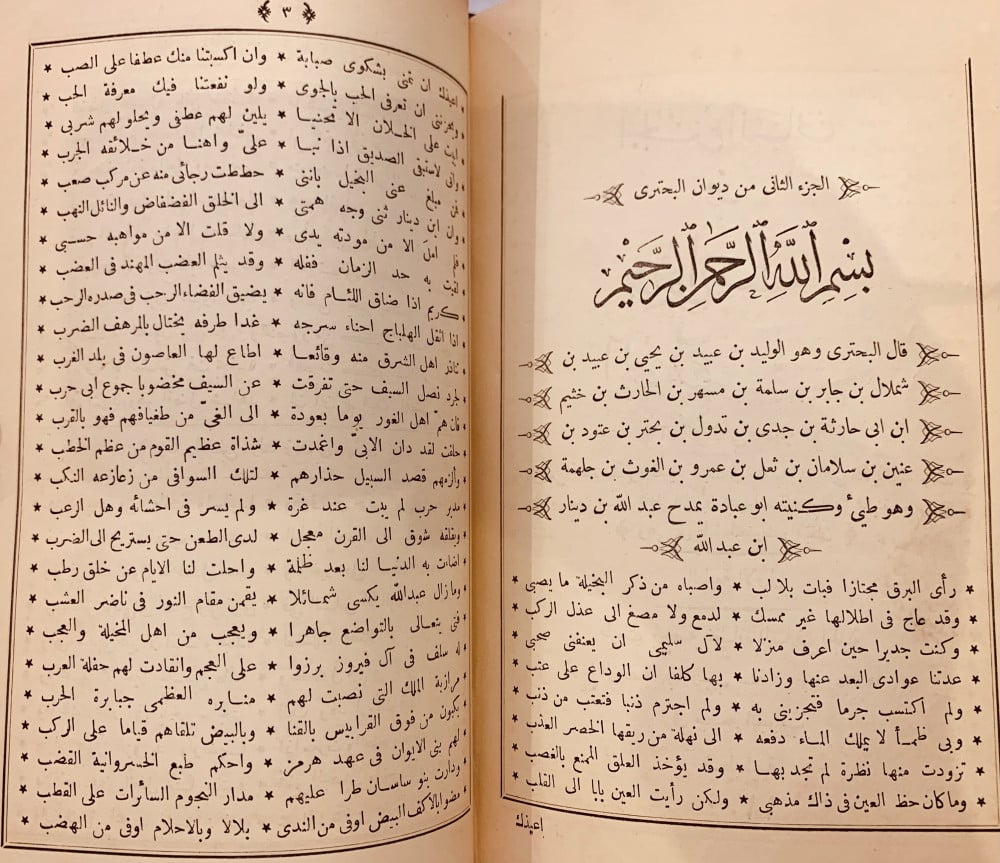 الجزء الثانى من ديوان البحترى
بسم الله الرحمن الرحيم
قال البحترى وهو الوليد بن عبيد بن يحيى بن عبيد بن
شملال بن جابر بن سلمة بن مسهر بن الحارث بن خثيم
ابن ابى حارثة بن جدى بن تدول بن بحتر بن عتود بن
عنين بن سلامان بن ثعل بن عمرو بن الغوث بن جلهمة
وهو طيئ وكنيته ابو عبادة يمدح عبد الله بن دينار
ابن عبدالله
* رأى البرق مجتازا فبات بلا لب * واصباه من ذكر البخيلة ما يصبى *
* وقد عاج فى اطلالها غير ممسك * لدمع ولا مصغ الى عذل الركب *
* وكنت جديرا حين اعرف منزلا * لآل سليمى ان يعنفنى صحبى *
* عدتنا عوادى البعد عنها وزادنا * بها كلفا ان الوداع على عتب *
* ولم اكتسب جرما فتجزينى به * ولم اجترم ذنبا فتعتب من ذنب *
* وبى ظمأ لا يملك الماء دفعه * الى نهلة من ريقها الخصر العذب *
* تزودت منها نظرة لم تجد بها * وقد يؤخذ العلق الممنع بالغصب *
* وما كان حظ العين فى ذاك مذهبى * ولكن رأيت العين بابا الى القلب *
اعيذك
٣
* اعيذك ان تمنى بشكوى صبابة * وان اكسبتنا منك عطفا على الصب *
* ويحزننى ان تعرفى الحب بالجوى * ولو نفعتنا فيك معرفة الحب *
* ابيت على الخلان الا تحنيا * يلين لهم عطفى ويحلو لهم شربى *
* وانى لاستبقى الصديق اذا نبا * علىّ واهنا من خلائقه الجرب *
* فمن مبلغ عنى البخيل باننى * حططت رجائى منه عن مركب صعب *
* وان ابن دينار ثنى وجه همتى * الى الخلق الفضفاض والنائل النهب *
* فلم املَ الا من مودته يدى * ولا قلت الا من مواهبه حسبى *
* لقيت به حد الزمان ففله * وقد يثلم العضب المهند فى العضب *
* كريم اذا ضاق اللئام فانه * يضيق الفضاء الرحب فى صدره الرحب *
* اذا اثقل الهلباج احناء سرجه * غدا طرفه يختال بالمرهف الضرب *
* تناذر اهل الشرق منه وقائعا * اطاع لها العاصون فى بلد الغرب *
* لجرد نصل السيف حتى تفرقت * عن السيف مخضوبا جموع ابى حرب *
* فان هم اهل الغور يوما بعودة * الى الغىّ من طغيانهم فهو بالقرب *
* حلفت لقد دان الابىّ واغمدت * شذاة عظيم القوم من عظم الخطب *
* والزمهم قصد السبيل حذارهم * لتلك السوافى من زعازعه النكب *
* مدبر حرب لم يبت عند غرة * ولم يسر فى احشائه وهل الرعب *
* ويقلقه شوق الى القرن معجل * لدى الطعن حتى يستريح الى الضرب *
* اضاءت به الدنيا لنا بعد ظلمة * واجلت لنا الايام عن خلق رطب *
* وما زال عبدالله يكسى شمائلا * يقمن مقام النور فى ناضر العشب *
* فتى يتعالى بالتواضع جاهرا * ويعجب من اهل المخيلة والعجب *
* له سلف فى آل فيروز برزوا * على العجم وانقادت لهم حفلة العرب *
* مرازبة الملك التى نصبت لهم * منابره العظمى جبابرة الحرب *
* يكبون من فوق القرابيس بالقنا * وبالبيض تلقاهم قياما على الركب *
* لهم بنى الايوان فى عهد هرمز * واحكم طبع الخسروانية القضب *
* ودارت بنو ساسان طرا عليهم * مدار النجوم السائرات على القطب *
* مضوا بالاكف البيض اوفى من الندى * بلالا وبالاحلام اوفى من الهضب *